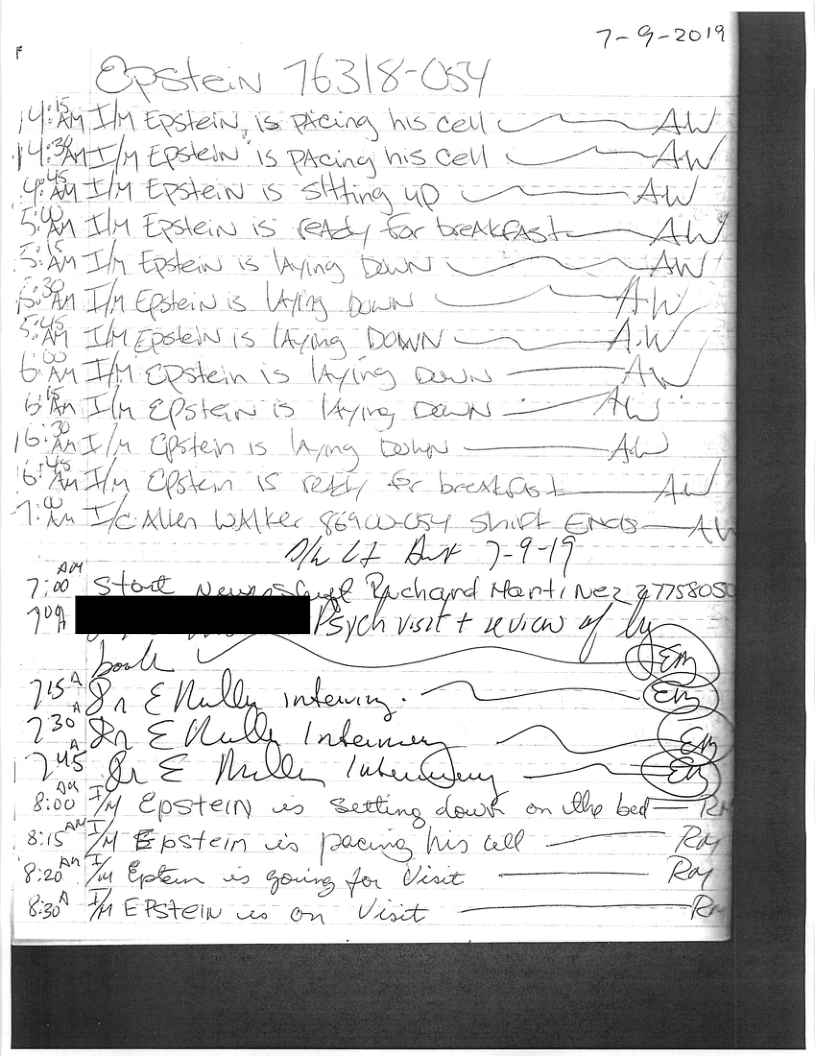 7-9-2019
F
Epstein 76318-054
4:15 AM I/M Epstein, is pAcing his cell AW
4:30 AM I/M Epstein is pAcing his cell AW
4:45 AM I/M Epstein is sitting up AW
5:00 AM I/M Epstein is ready for breakFASt AW
5:15 AM I/M Epstein is lAying Down AW
5:30 AM I/M Epstein is lAying Down AW
5:45 AM I/M Epstein is lAying DOWN A.W
6:00 AM I/M Epstein is lAying Down AW
6:15 AM I/M Epstein is lAying Down AW
6:30 AM I/M Epstein is lAying Down AW
6:45 AM I/M Epstein is ready for breakfast AW
7:00 AM I/C Allen WAlker 86900-054 Shift Ends AW
Lt 7-9-19
7:00 AM Start Richard Martinez 27758050
709 A Psych visit + review of
book EM
715 A Dr E interving. EM
730 A Dr E EM
745 A Dr E EM
8:00 AM I/M EpSTEIN is setting down on the bed RM
8:15 AM I/M Epstein is pacing his cell RM
8:20 AM I/M Eptein is going for Visit RM
8:30 A I/M EPSTEIN is on Visit RM